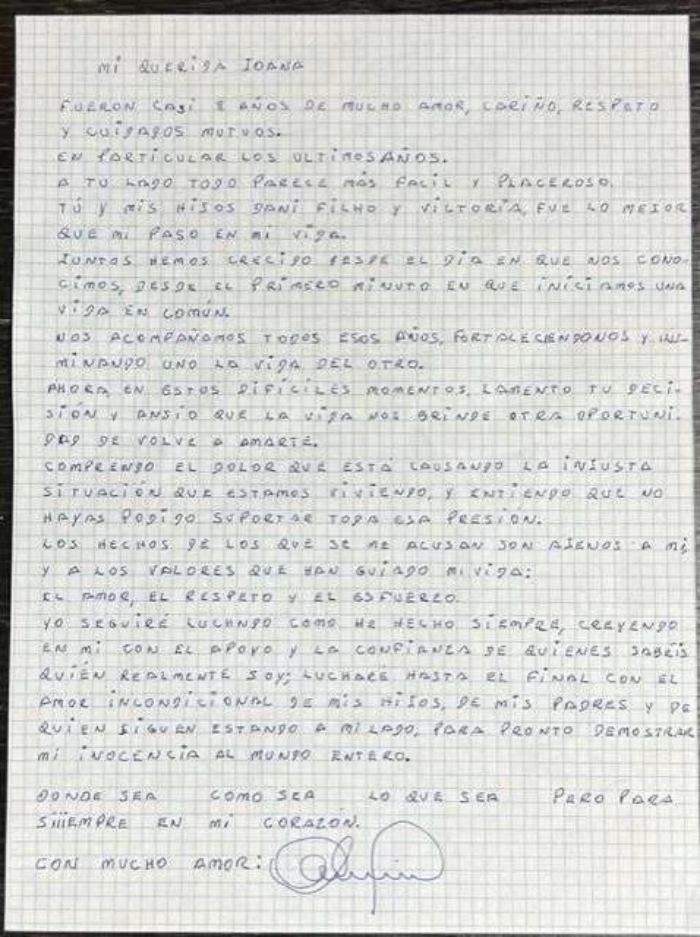 Mi QUERiDA IOANA
FUERON CASI 8 AÑOS DE MUCHO AMOR, CARiÑO, RESPETO
Y CUiDADOS MUTUOS.
EN PARTiCULAR LOS ULTiMOS AÑOS.
A TU LADO TODO PARECE MÁS FACiL Y PLACEROSO.
TÚ Y MiS HiJOS DANi FiLHO Y ViCTORiA, FUE LO MEJOR
QUE Mi PASO EN Mi ViDA.
JUNTOS HEMOS CRECiDO DESDE EL DÍA EN QUE NOS CONO-
CiMOS, DESDE EL PRiMERO MiNUTO EN QUE iNiCiAMOS UNA
ViDA EN COMÚN.
NOS ACOMPAÑAMOS TODOS ESOS AÑOS, FORTALECiENDONOS Y iLU-
MiNANDO UNO LA ViDA DEL OTRO.
AHORA, EN ESTOS DiFÍCiLES MOMENTOS, LAMENTO TU DECi-
SiÓN Y ANSiO QUE LA ViDA NOS BRiNDE OTRA OPORTUNi-
DAD DE VOLVE A AMARTE.
COMPRENDO EL DOLOR QUE ESTÁ CAUSANDO LA iNJUSTA
SiTUACiÓN QUE ESTAMOS ViViENDO, Y ENTiENDO QUE NO
HAYAS PODiDO SUPORTAR TODA ESA PRESiÓN.
LOS HECHOS DE LOS QUE SE ME ACUSAN SON AJENOS A Mi,
Y A LOS VALORES QUE HAN GUiADO Mi ViDA:
EL AMOR, EL RESPETO Y EL ESFUERZO.
YO SEGUiRÉ LUCHANDO COMO HE HECHO SiEMPRE, CREYENDO
EN Mi CON EL APOYO Y LA CONFiANZA DE QUiENES SABÉiS
QUiÉN REALMENTE SOY; LUCHARÉ HASTA EL FiNAL CON EL
AMOR iNCONDiCiONAL DE MiS HiJOS, DE MiS PADRES Y DE
QUiEN SiGUEN ESTANDO A Mi LADO, PARA PRONTO DEMOSTRAR
Mi iNOCENCiA AL MUNDO ENTERO.
DONDE SEA COMO SEA LO QUE SEA PERO PARA
SiiiEMPRE EN Mi CORAZÓN.
CON MUCHO AMOR: